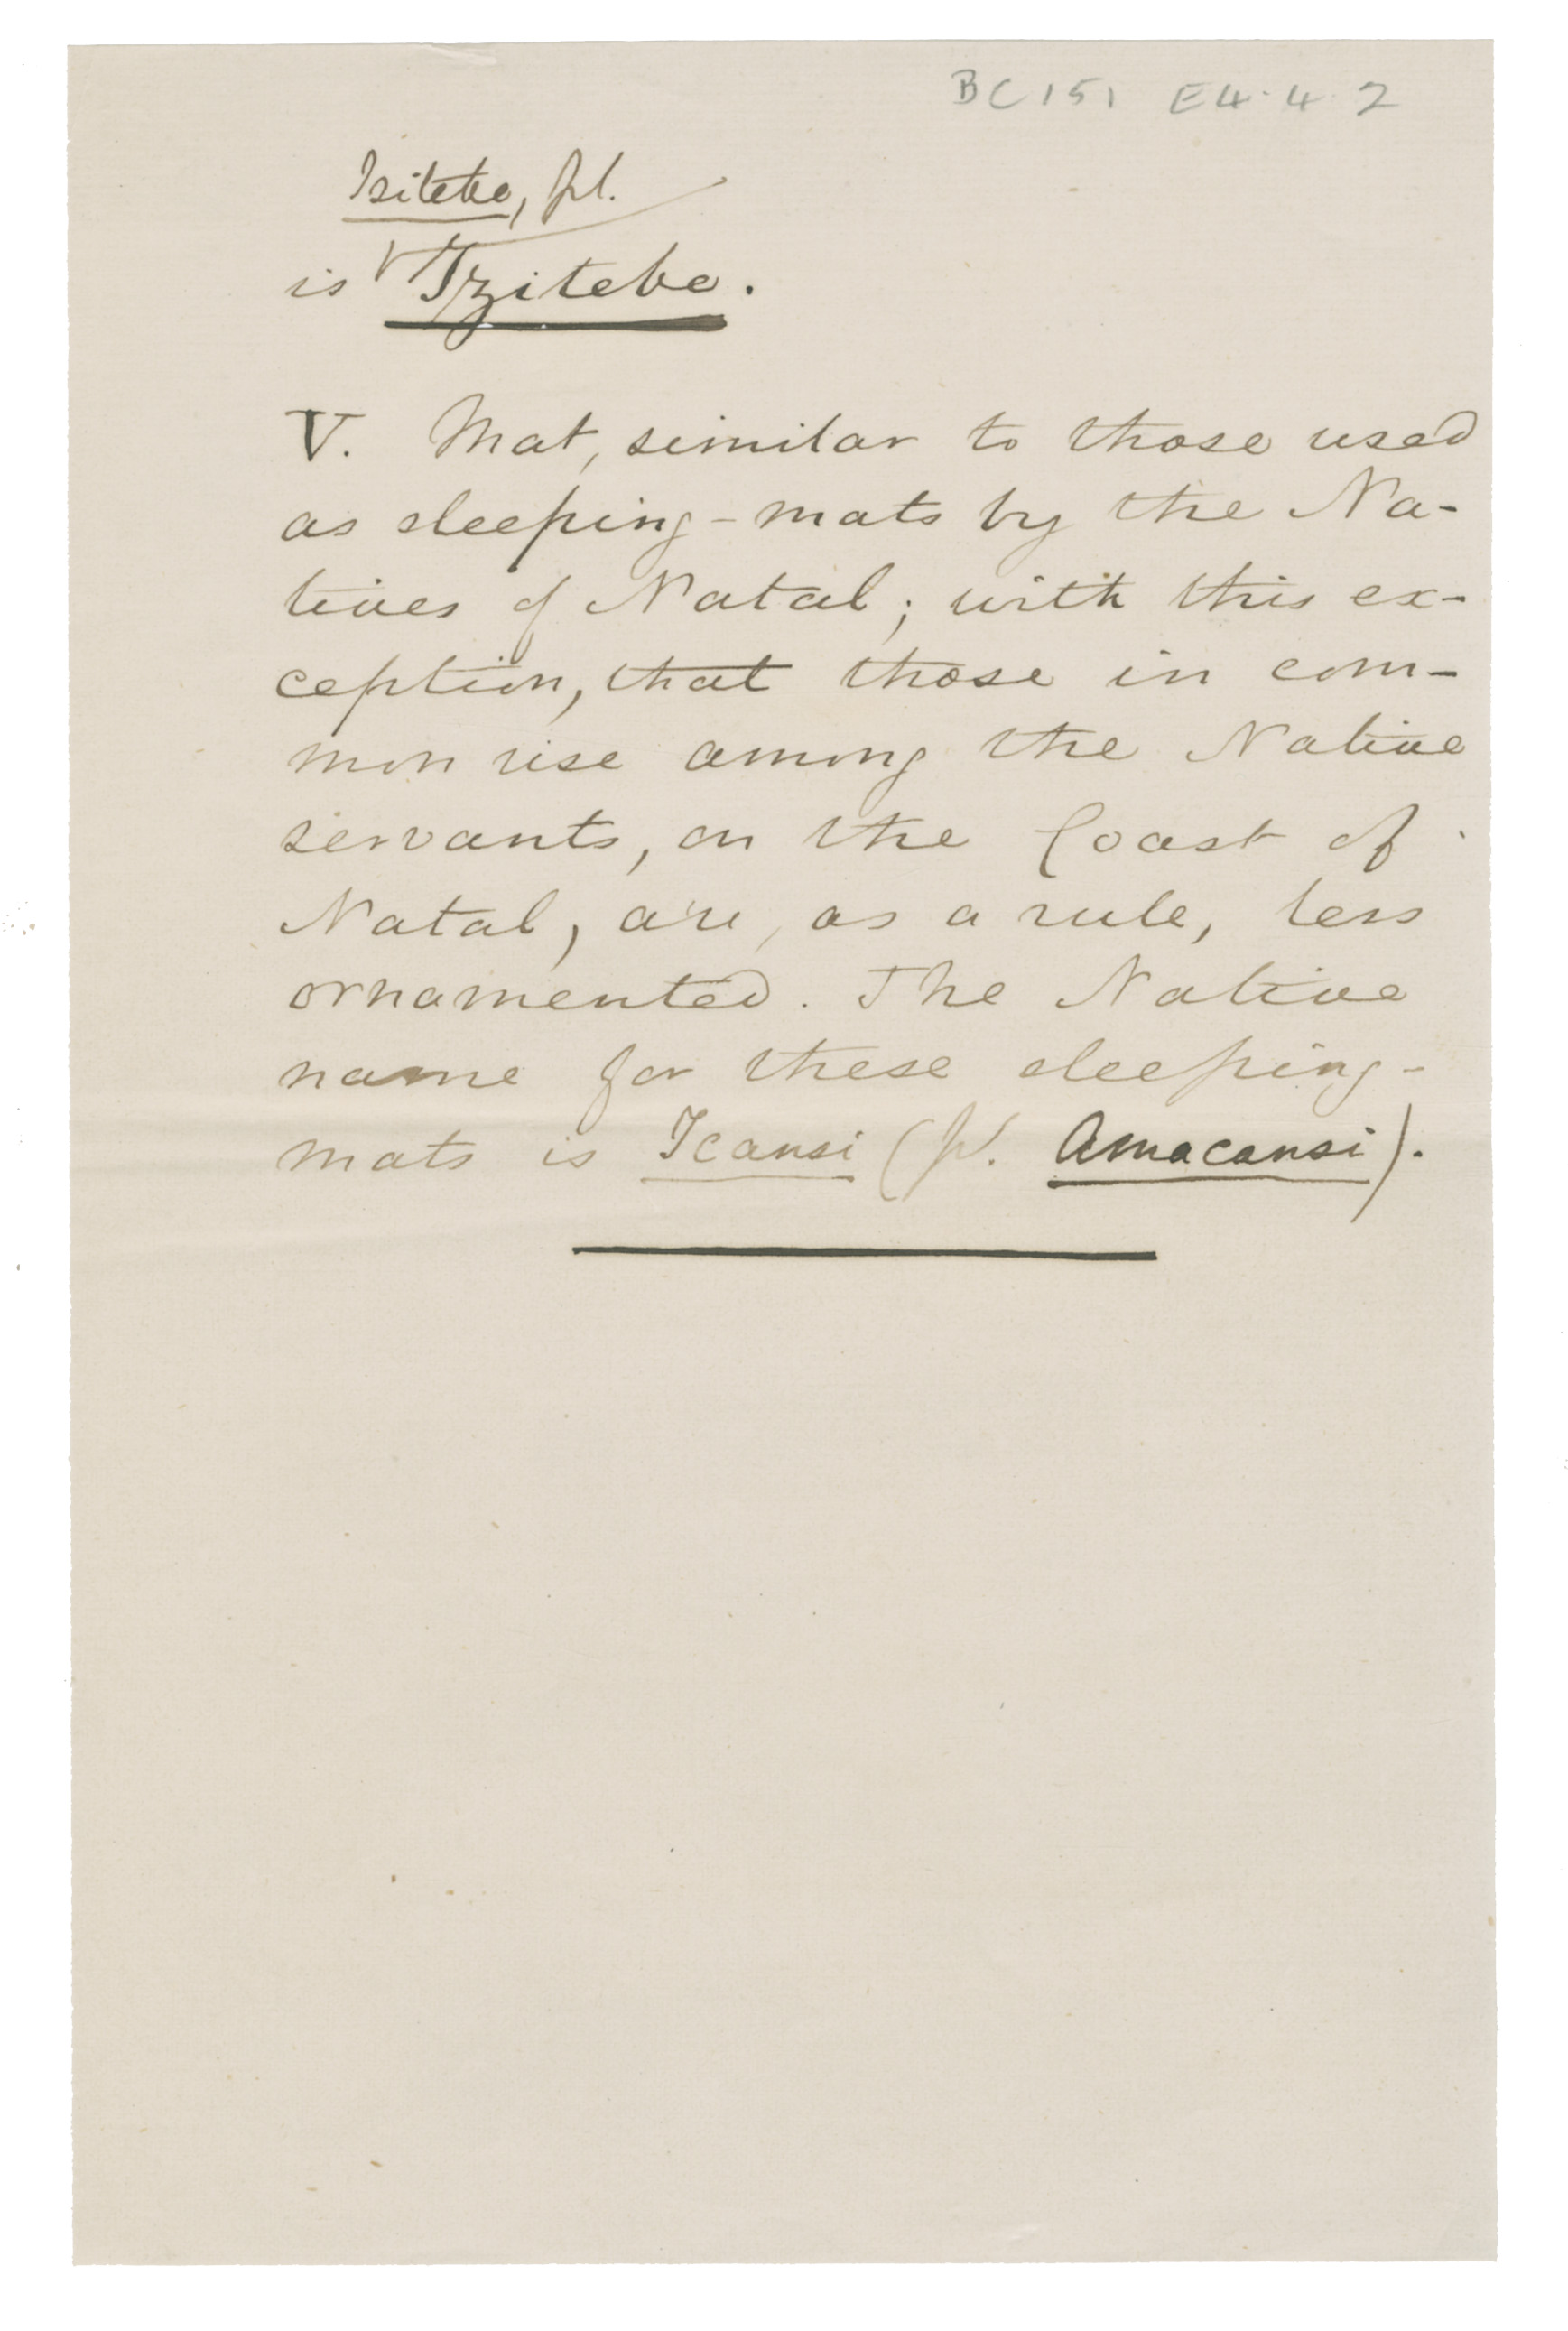 BC151 E4.4.2
Isitebe, pl.
is Izitebe.
V. Mat, similar to those used
as sleeping-mats by the Na-
tives of Natal; with this ex-
ception, that those in com-
mon use among the Native
servants, on the Coast of
Natal, are, as a rule, less
ornamented. The Native
name for these sleeping-
mats is Icansi (pl. Amacansi).